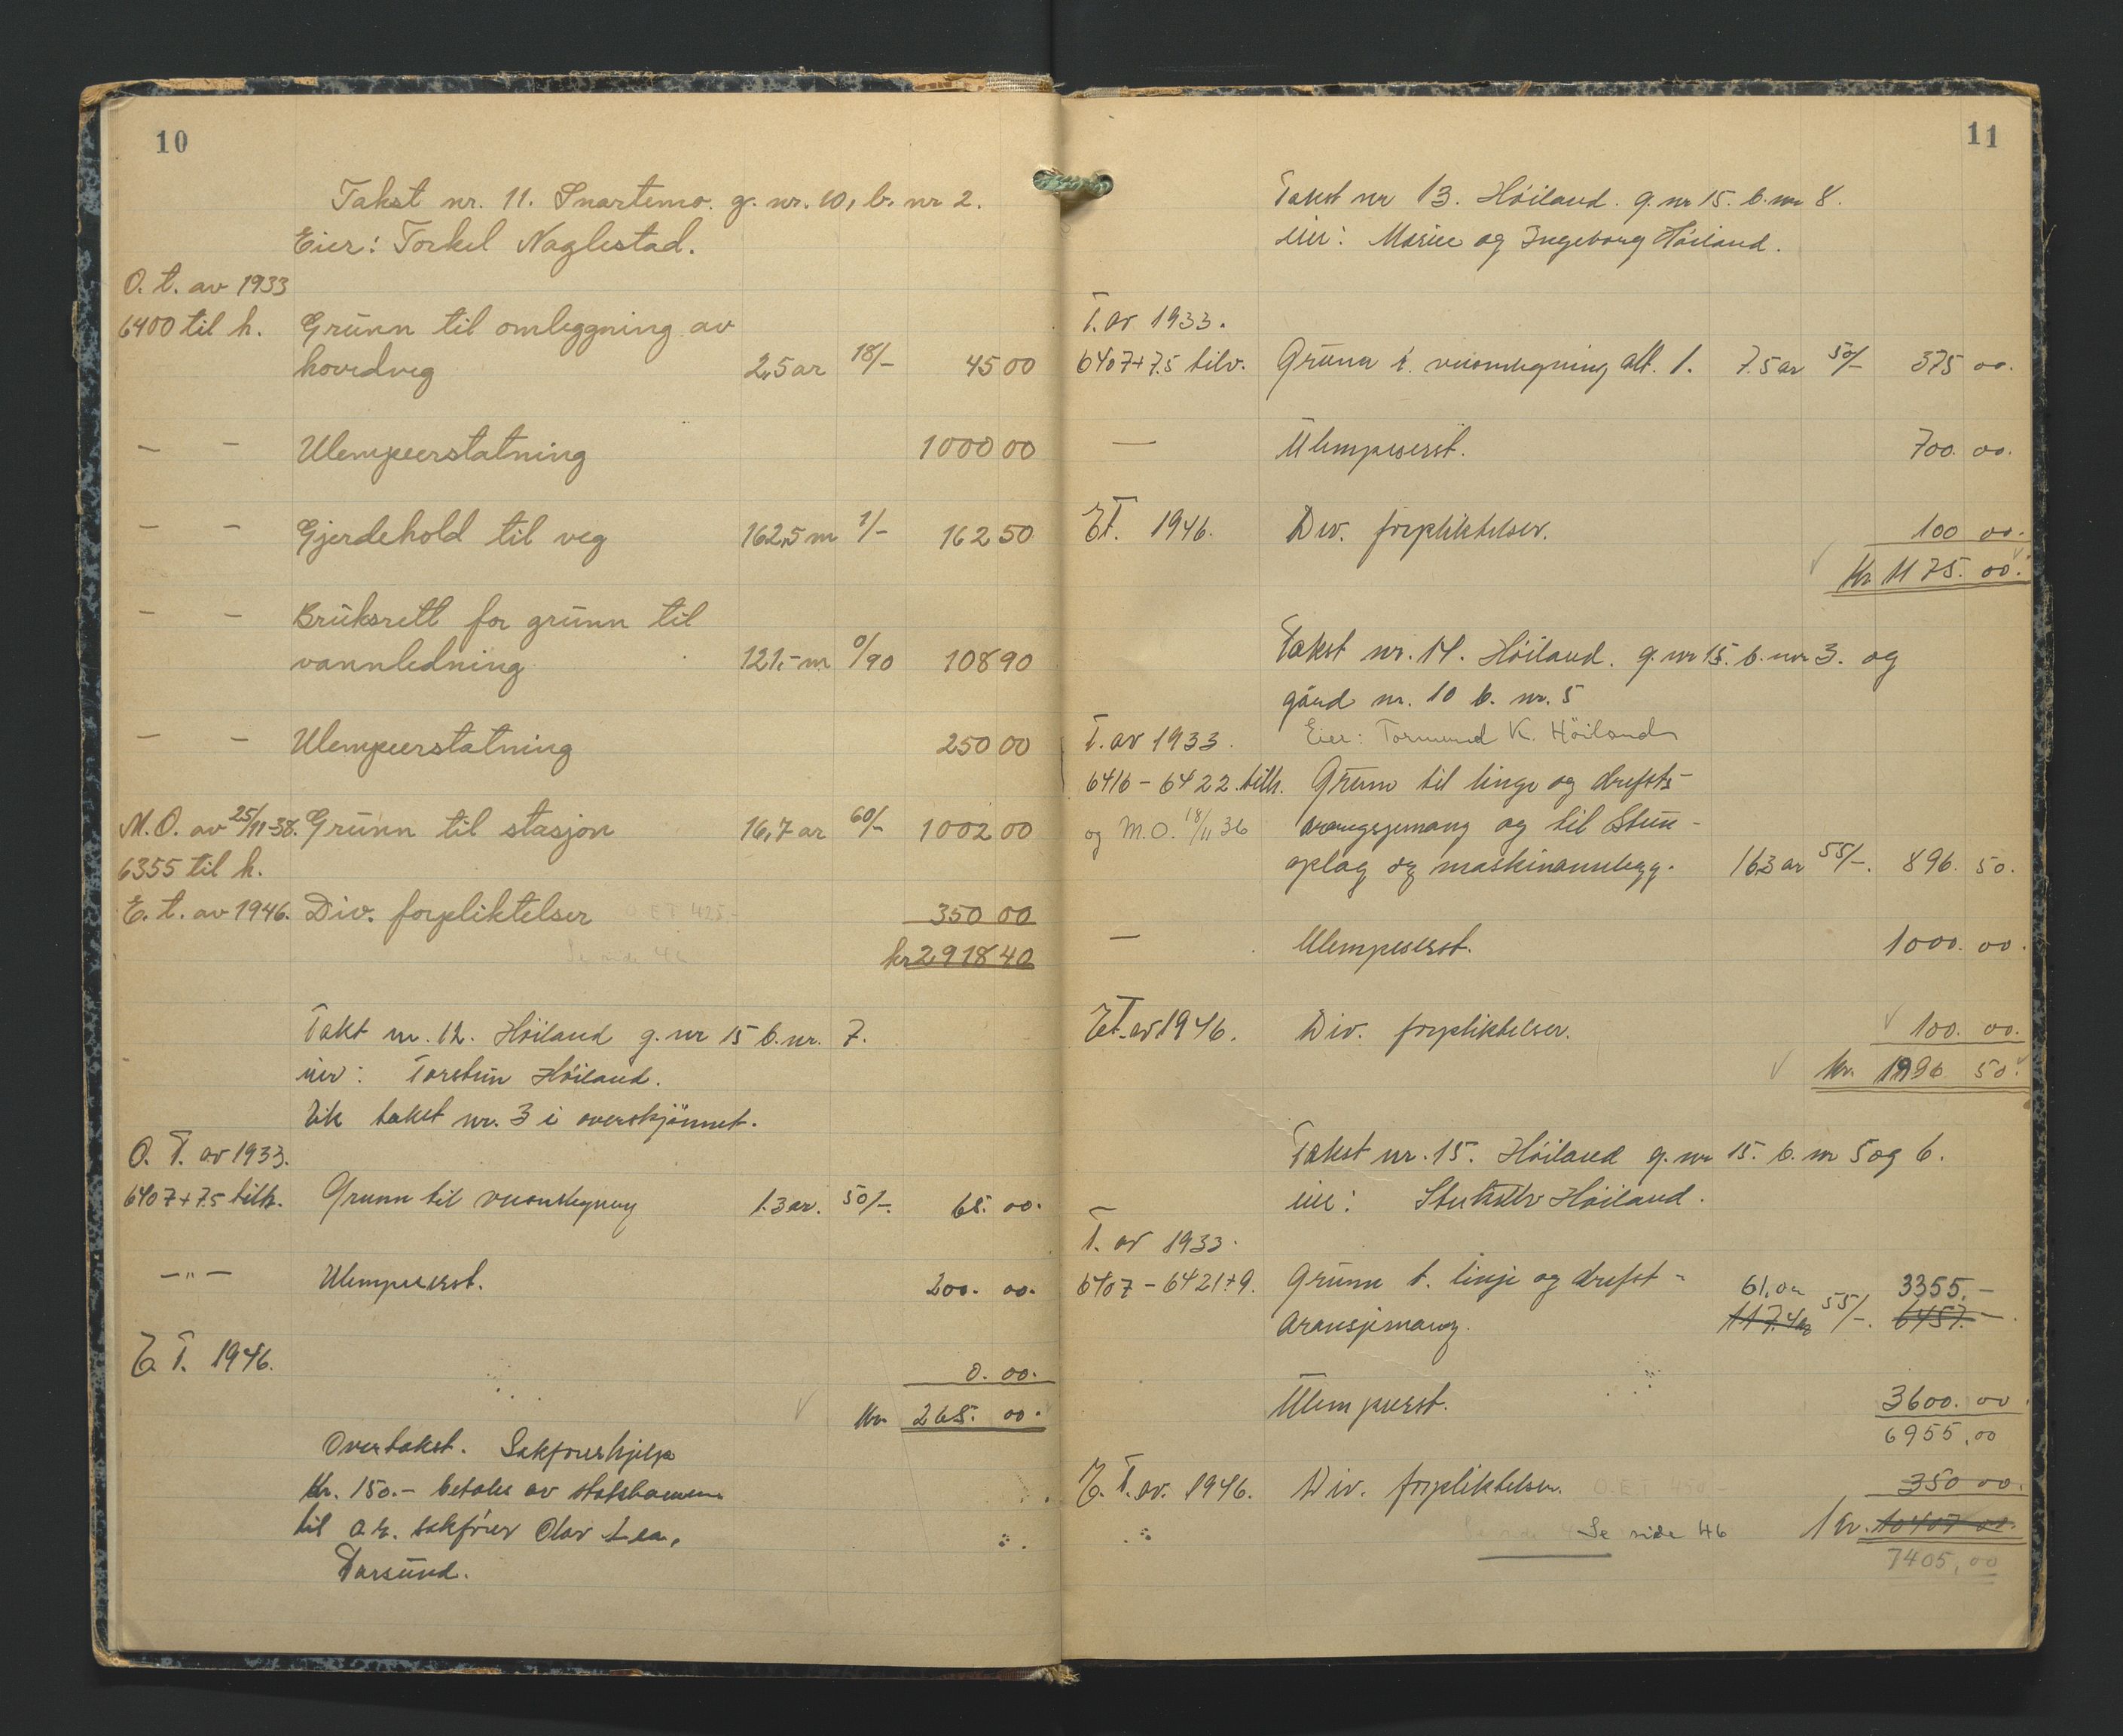 10
Takst nr. 11. Snartemo. g. nr. 10, b. nr 2.
Eier: Torkel Naglestad.
O. t. av 1933
6400 til h. Grunn til omleggning av
hovedveg 2,5 ar 18/- 45 00
- - Ulempeerstatning 1000 00
- - Gjerdehold til veg 162,5 m 1/- 162 50
- - Bruksrett for grunn til
vannledning 121,- m 0/90 108 90
- - Ulempeerstatning 250 00
M.O. av 25/11-38. Grunn til stasjon 16,7 ar 60/- 1002 00
6355 til h.
E. t. av 1946. Div. forpliktelser O.E.T 425,- 350 00
Se side 46 kr 2918 40
Takt nr. 12. Höiland g. nr 15 b. nr. 7.
eier: Torstein Höiland.
Lik takst nr. 3 i overskjönnet.
O. T. av 1933.
6407+7.5 tilh. Grunn til veiomlegning 1.3 ar. 50/-. 65. 00.
-"- Ulempeerst. 200. 00.
E. T. 1946. 0. 00.
Kr. 265. 00.
Overtakst. Sakförerhjelp
Kr. 150.- betales av statsbanen
til o.r. sakförer Olav Lea,
Farsund.
11
Takst nr 13. Höiland. g. nr 15. b. nr 8.
eier: Marie og Ingeborg Höiland.
T. av 1933.
6407+7.5 tilv. Grunn t. veiomlegning alt. 1. 7.5 ar 50/- 375 00.
— Ulempeserst. 700. 00.
E.T. 1946. Div. forpliktelser. 100 00.
Kr 1175. 00.
Takst nr. 14. Höiland. g. nr 15. b. nr 3. og
gård nr. 10 b. nr. 5
Eier: Tormund K. Höiland
T. av 1933.
6416 - 6422. tilh. Grunn til linje og drifts-
og M.O. 18/11 36 arrangsjemang og til Stein-
oplag og maskinannlegg. 16.3 ar 55/-. 896. 50.
— Ulempeserst. 1000. 00.
E.T. av 1946. Div. forpliktelser. 100. 00.
Kr. 1996 50.
Takst nr. 15. Höiland g. nr 15. b. nr 5 og 6.
eier: Höiland.
T. av 1933.
6407 - 6421+9. Grunn t. linje og drifst- 61,0 ar 3355,-
aransjemang. 117.4 ar 55/-. 6457.-
Ulempeerst. 3600. 00
6955,00
E. T. av. 1946. Div. forpliktelser. O.E.T 450,- 350 00.
Se side 46 Kr. 10407 00.
7405,00